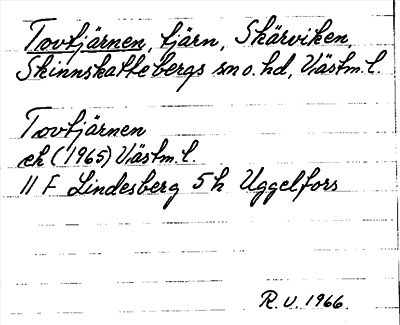 Tovtjärnen, tjärn, Skärviken,
Skinnskattebergs sn o. hd, Västm. l.
Tovtjärnen
ek (1965) Västm. l.
11 F Lindesberg 5 h Uggelfors
R. U. 1966.